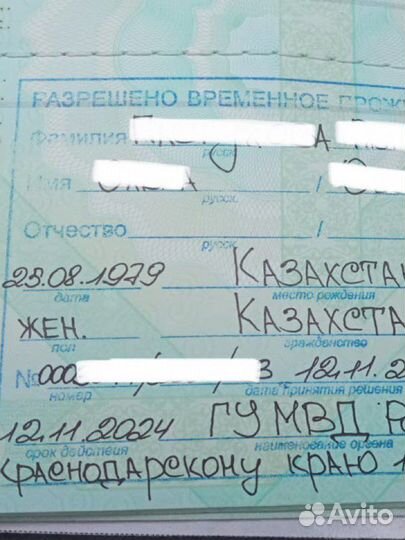 РАЗРЕШЕНО ВРЕМЕННОЕ
Фамилия
русск.
Имя /
русск.
Отчество /
русск.
23.08.1979 КАЗАХСТАН
дата место рождения
ЖЕН. КАЗАХСТА
пол гражданство
№000 /3 12.11.2
номер дата принятия решения
12.11.2024 ГУ МВД
срок действия наименование органа
КРАСНОДАРСКОМУ КРАЮ
Avito